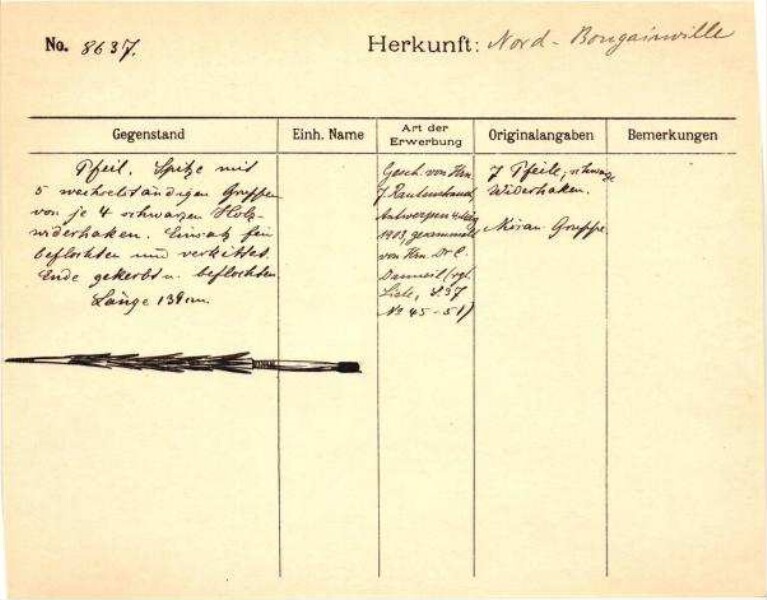 No. 8637.
Herkunft: Nord-Bougainville
Gegenstand
Einh. Name
Art der Erwerbung
Originalangaben
Bemerkungen
Pfeil. Spitze mit
5 wechselständigen Gruppen
von je 4 schwarzen Holz-
widerhaken. Einsatz fein
beflochten und verkittet.
Ende gekerbt u. beflochten.
Länge 139 cm.
Gesch. von Hrn.
J Rautenstrauch,
Antwerpen
1913, gesammelt
von Hrn. Dr C.
(vgl.
Liste, S. 37
No 45-51)
7 Pfeile, schwarze
Widerhaken.
Gruppe